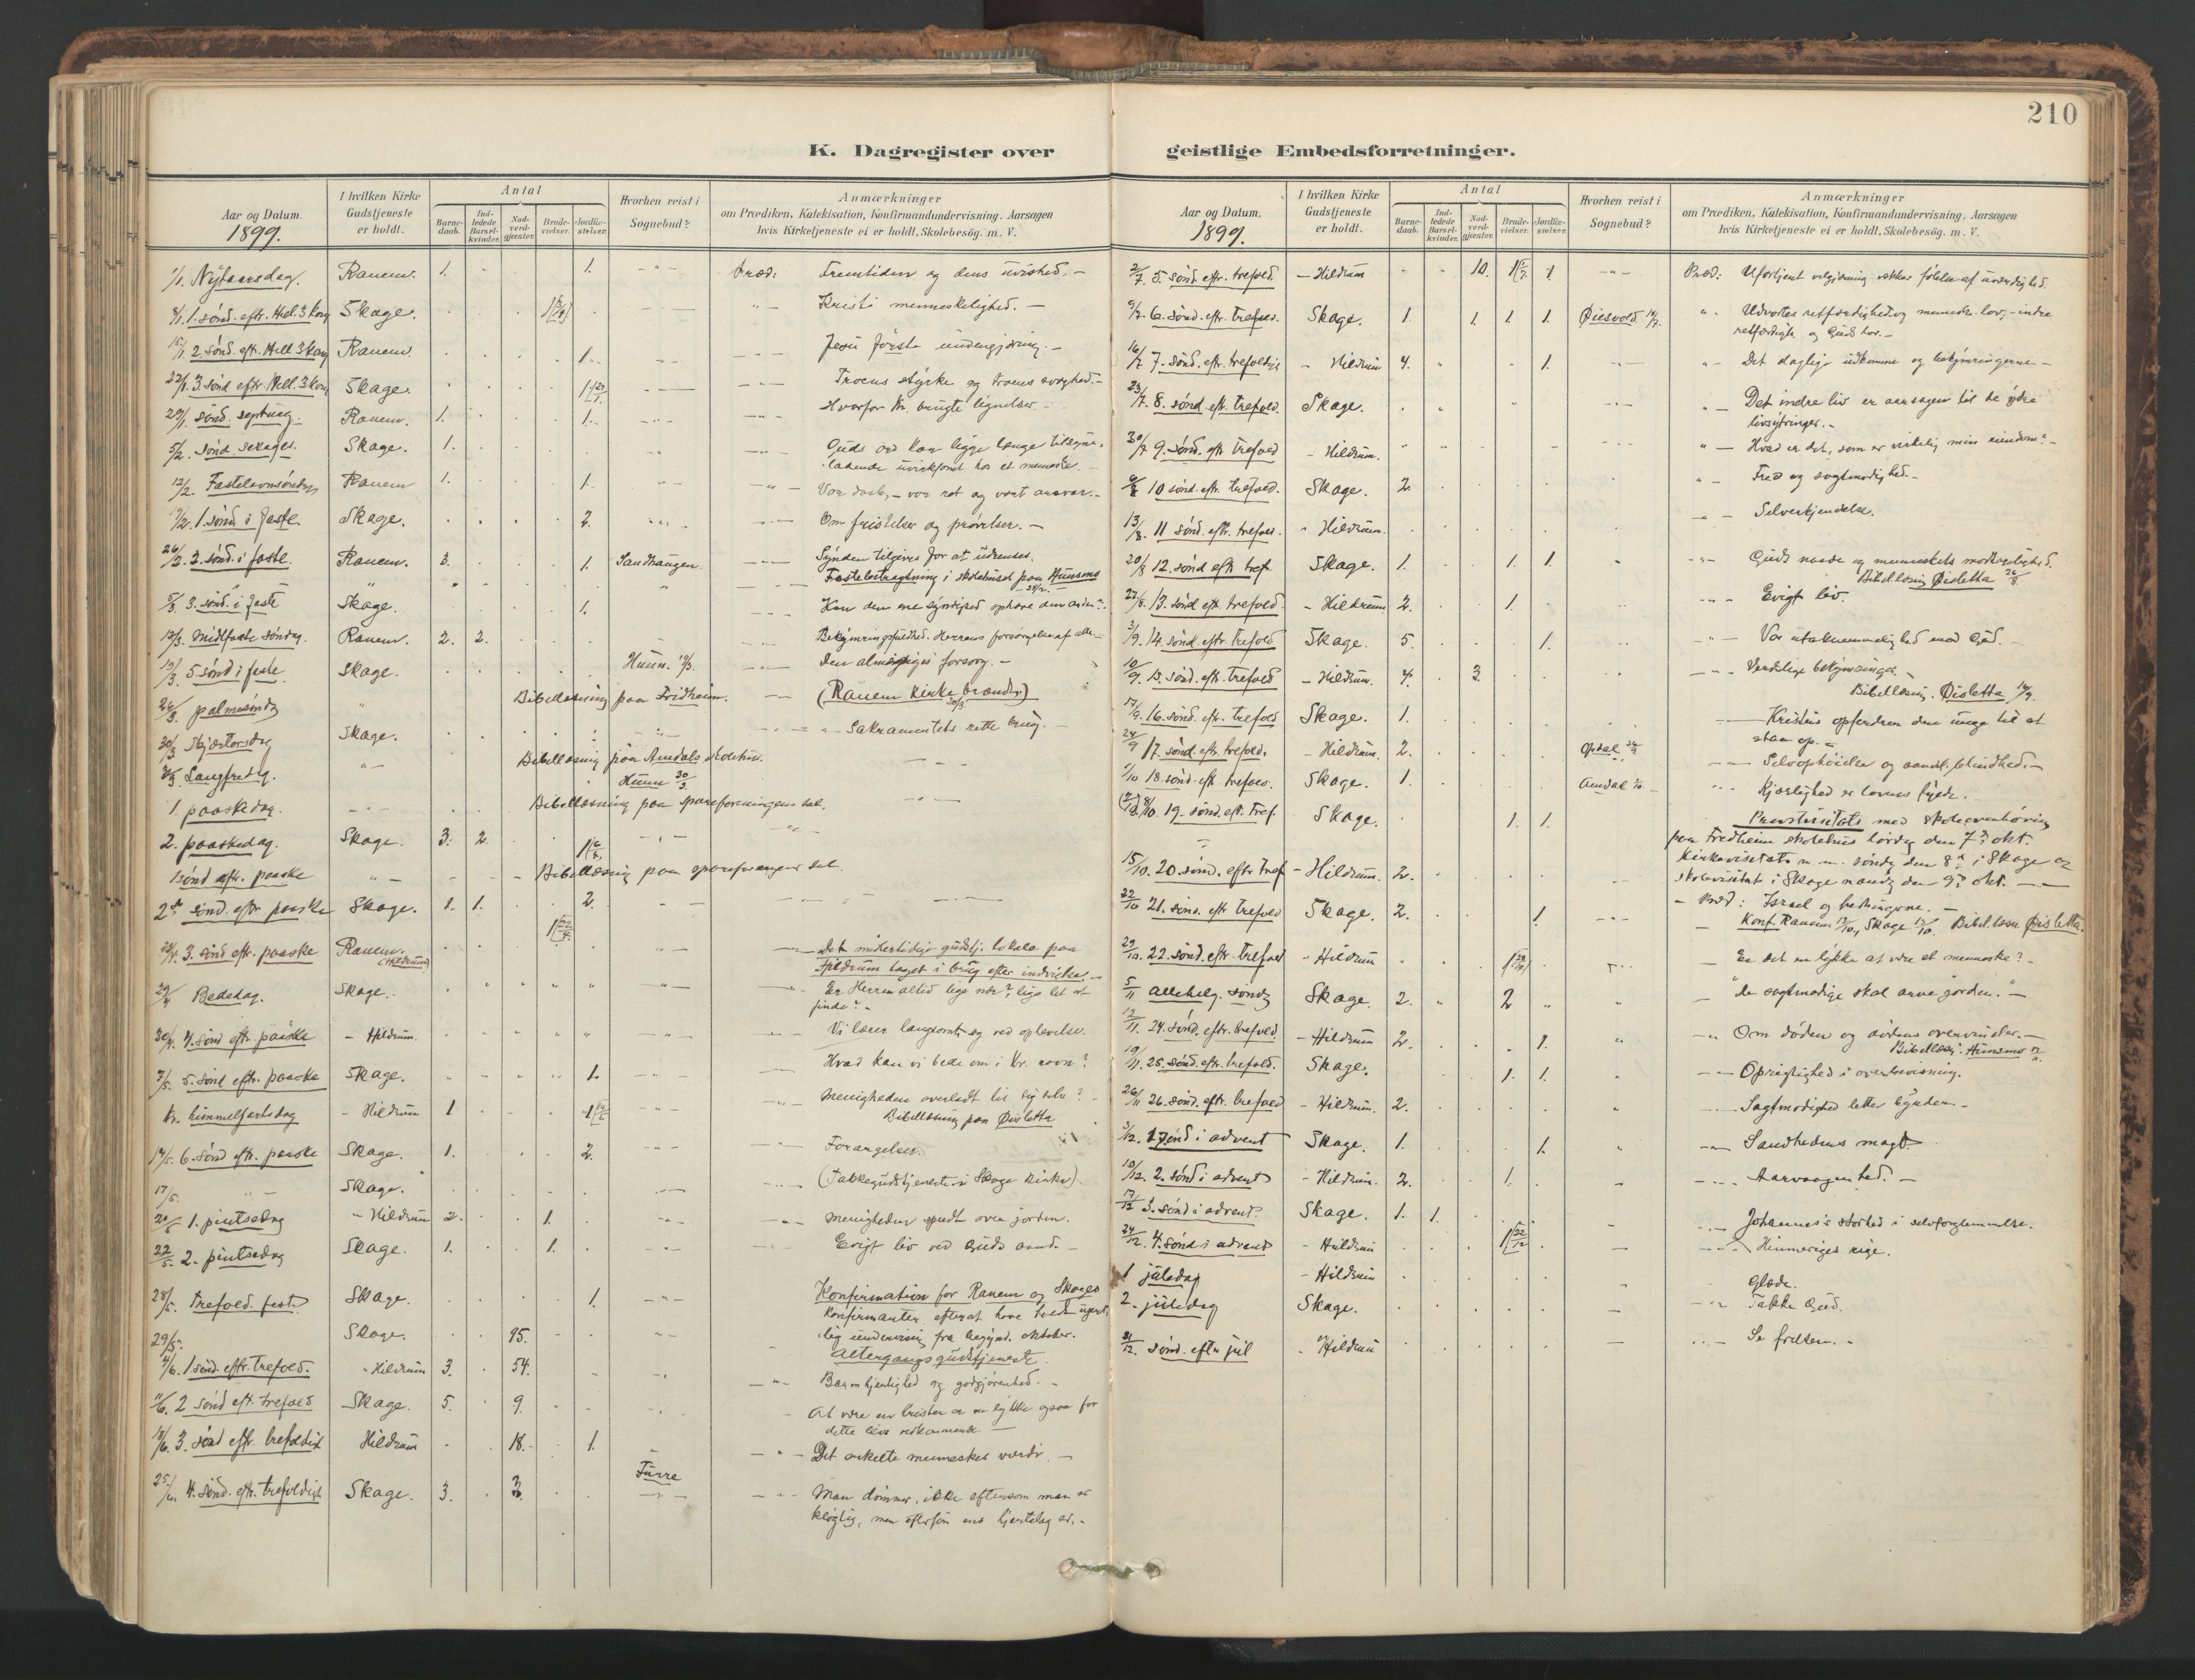 210
K. Dagregister over
geistlige Embedsforretninger.
Aar og Datum.
1899.
I hvilken Kirke
Gudstjeneste
er holdt.
Antal
Barne-
daab.
Ind-
ledede
Barsel-
kvinder.
Nad-
verd-
gjæster.
Brude-
vielser.
Jordfæ-
stelser.
Hvorhen reist i
Sognebud?
Anmærkninger
om Prædiken, Katekisation, Konfirmandundervisning, Aarsagen
hvis Kirketjeneste ei er holdt, Skolebesøg. m. V.
1/1. Nytaarsdag. Ranem. 1. 1. Præd: Fremtiden og dens uvished. -
8/1. 1. sønd. eftr. Hel. 3 Kong Skage. Kristi menneskelighed. -
15/1 2 sønd. eft. Hell 3 Kong Ranem. 1. Jesu første undergjerning. -
22/1. 3. sønd eftr. Hell. 3 Kong Skage. Troens styrke og troens svaghed. -
29/1. sønd. septuag. Ranem. 1. 1. Hvorfor Kr. brugte lignelser. -
5/2. sønd sexages. Skage. 1. Guds ord kan ligge længe tilsyne-
ladende uvirksomt hos et menneske. -
12/2. Fastelavnsøndag Ranem 1. 1. Vor daab, - vor ret og vort ansvar. -
19/2. 1. sønd i faste. Skage. 2. Om fristelser og prøvelser. -
26/2. 2. sønd. i faste. Ranem. 3. 1. Sandhaugen. Synden tilgives for at udrenses.
Fastebetragtning i skolehuset paa Hunsmo
5/3. 3. sønd. i faste Skage. 1. Kan den ene syndighed ophæve den anden?
12/3. Midtfaste søndag. Ranem. 2. 2. Bekymringsfuldhed. Herrens forsørgelse af alle -
19/3. 5. sønd i faste Skage. Hunn. 19/3. Den almægtiges forsorg. -
26/3. palmesøndag Bibellæsning paa Fridheim. (Ranem Kirke brændte)
30/3 Skjærtorsdag Skage. Sakramentets rette brug. -
31/3. Langfredag. Bibellæsning paa Amdals skolehus.
Hunn 30/3.
1. paaskedag. Bibellæsning paa spareforeningens sal.
2. paaskedag. Skage. 3. 2.
1 sønd eftr. paaske Bibellæsning paa spareforeningens sal.
2den sønd. eftr. paaske Skage. 1. 1. 2.
3. sønd eftr. paaske Ranem. (Hildrum) 1 Det midlertidige gudstj. lokale paa
Hildrum taget i brug efter indvielse. -
Bededag. Skage. Er Herren altid lige nær?, lige let at
finde? -
30/4. 4. sønd eftr. paaske - Hildrum. Vi lærer langsomt og ved oplevelse.
7/5. 5. sønd eftr. paaske Skage. 1. Hvad kan vi bede om i Kr. navn?
Kr. himmelfartsdag - Hildrum 1 Menigheden overladt til sig selv? -
Bibellæsning paa Øisletta
14/5. 6. sønd eftr. paaske Skage. 1. 2. Forargelser.
17/5. Skage. (Takkegudstjeneste i Skage Kirke).
1. pintsedag - Hildrum 2. 1. Menigheden spredt over jorden.
22/5. 2. pintsedag Skage. 1. 1. Evigt liv ved Guds aand. -
28/5. Trefold. fest Skage. 1. Konfirmation for Ranem og Skages
konfirmanter, efterat have havt ugent-
lig undervisning fra begynd. oktober.
29/5. Skage. 95. Altergangsgudstjeneste.
4/6. 1 sønd. eftr. trefold. - Hildrum 3. 54. Barmhjertighed og godgjørenhed. -
11/6. 2 sønd eft. trefold Skage. 5. 9. At være en kristen er en lykke ogsaa for
dette livs vedkommende -
18/6. 3. sønd eftr. trefoldigh Hildrum 18. 1. Det enkelte menneskes værdi. -
25/6. 4. sønd. eftr. trefoldigh Skage. 3. 3. Furre Man dømmer, ikke eftersom man er
kløgtig, men eftersom ens hjertelag er. -
Aar og Datum.
1899.
I hvilken Kirke
Gudstjeneste
er holdt.
Antal
Barne-
daab.
Ind-
ledede
Barsel-
kvinder.
Nad-
verd-
gjæster.
Brude-
vielser.
Jordfæ-
stelser.
Hvorhen reist i
Sognebud?
Anmærkninger
om Prædiken, Katekisation, Konfirmandundervisning, Aarsagen
hvis Kirketjeneste ei er holdt, Skolebesøg. m. V.
2/7. 5. sønd. eftr. trefold. - Hildrum 10. 1 1 Præd: Ufortjent velgjerning vækker følelse af uværdighed.
9/7. 6. sønd. eftr. trefold. Skage. 1. 1. 1. 1. Øiesvold. Udvortes retfærdighed og menneske lov, - indre
retfærdigh. og Guds lov. -
16/7 7. sønd. eftr. trefoldigh - Hildrum 4. 1. Det daglige udkomme og bekymringerne -
23/7. 8. sønd. eft. trefold. Skage. Det indre liv er aarsagen til de ydre
livsytringer. -
30/7 9. sønd. eftr trefold - Hildrum. Hvad er det, som er virkelig min eiendom? -
6/8 10 sønd. eftr. trefold. Skage. 2. Fred og sagtmodighed. -
13/8. 11 sønd. eftr. trefold. - Hildrum. Selverkjendelse.
20/8 12. sønd eftr tref. Skage. 1. 1. 1. Guds naade og menneskets modtagelighed.
Bibellæsning Øisletta
27/8. 13. sønd eft. trefold. - Hildrum 2. 1. Evigt liv.
3/9. 14 sønd. eftr. trefold Skage. 5. 1. Vor utaknemmelighed mod Gud. -
10/9. 15. sønd. eft. trefold - Hildrum. 4. 3. Verdslige bekymringer. -
Bibellæsning. Øisletta
17/9. 16. sønd. eft. trefold Skage. 1. Kristus opfordrer den unge til at
staa op. -
24/9 17. sønd. eft. trefold. - Hildrum. 2. Opdal Selvophøielse og aandel. blindhed. -
1/10 18. sønd. eft trefold. Skage. 1. Amdal 1/10 Kjærlighed er lovens fylde.
8/10. 19. sønd. eft. Tref. Skage. 1. 1. Provstevisitats med skoleoverhøring
paa Fredheim skolehus lørdag den 7de okt.
Kirkevisitats m. m. søndag den 8de i Skage og
skolevisitats i Skage mandag den 9de okt. -
15/10. 20. sønd. eftr tref - Hildrum. 2. - Præd: Israel og hedningerne. -
22/10 21. sønd. eftr trefold Skage. 2. 1. Konf. Ranem Skage Bibellæsn. Øisletta.
29/10. 22. sønd. eftr. trefold - Hildrum Er det en lykke at være et menneske? -
5/11 allehelg. søndag Skage. 2. 2 "De sagtmodige skal arve jorden." -
12/11. 24. sønd. eftr. trefold. - Hildrum 2. 1. Om døden og dødens overvinder. -
Bibellæsn. Hunsmo
19/11. 25. sønd. eftr. trefold. Skage. 1. 1. Oprigtighed i overbevisning.
26/11 26. sønd. eftr. trefold - Hildrum. 2. Sagtmodighed letter byrden. -
3/12. 1 sønd i advent Skage. 1. 1. Sandhedens magt.
10/12. 2. sønd i advent - Hildrum. 2. 1. Aarvaagenhed. -
17/12 3. sønd i advent. Skage. 1. 1. Johannes's storhed i selvforglemmelse.
24/12. 4. sønd i advent - Hildrum 1 22/12 Himmeriges rige.
1 juledag - Hildrum Glæde.
2. juledag Skage. Takke Gud.
31/12. sønd. eftr jul - Hildrum Se frelsen. -